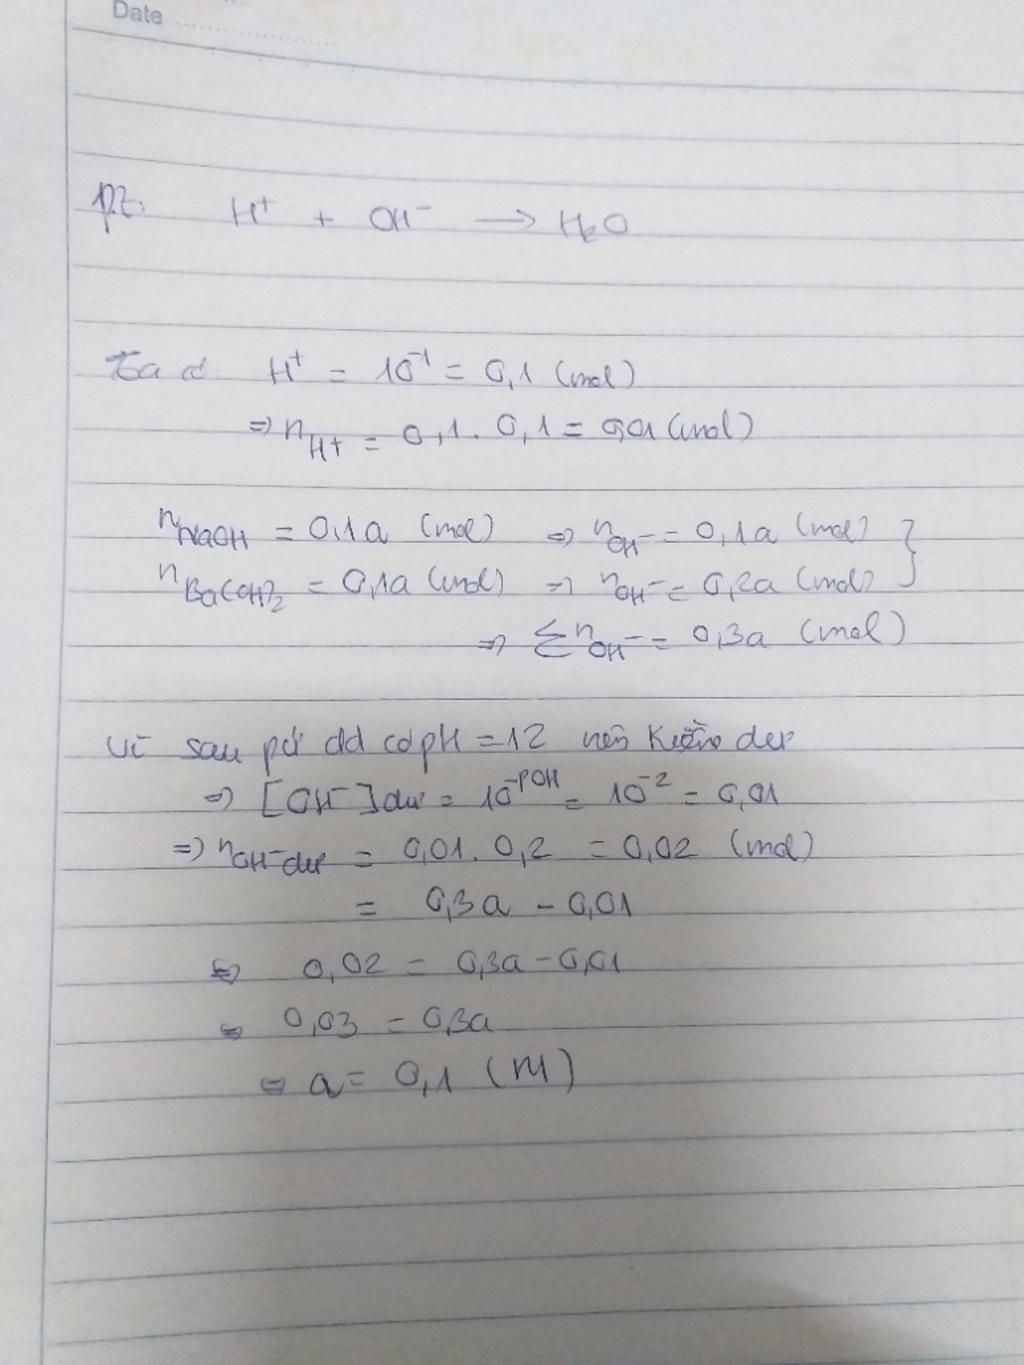 Date
Pt: H⁺ + OH⁻ → H₂O
Ta có: H⁺ = 10⁻¹ = 0,1 (mol)
⇒ n_H+ = 0,1 . 0,1 = 0,01 (mol)
n_NaOH = 0,1a (mol) ⇒ n_OH⁻ = 0,1a (mol)
n_Ba(OH)₂ = 0,1a (mol) ⇒ n_OH⁻ = 0,2a (mol)
⇒ Σn_OH⁻ = 0,3a (mol)
Vì sau pứ dd có pH = 12 nên kiềm dư
⇒ [OH⁻]dư = 10^-pOH = 10⁻² = 0,01
⇒ n_OH⁻dư = 0,01 . 0,2 = 0,02 (mol)
= 0,3a - 0,01
⇔ 0,02 = 0,3a - 0,01
⇔ 0,03 = 0,3a
⇔ a = 0,1 (M)